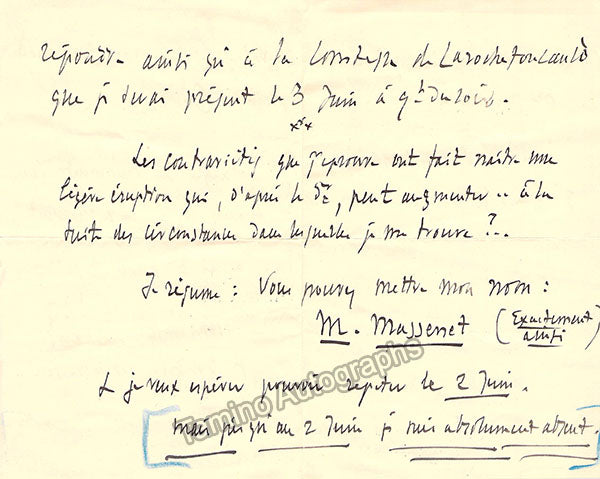 répondre ainsi qu'à la Comtesse de Larochefoucauld
que je serai présent le 3 Juin à 9h du soir.
Les contrariétés que j'éprouve ont fait naître une
légère éruption qui, d'après le Dr, peut augmenter .. à la
suite des circonstance dans lesquelles je me trouve ?..
Je résume : Vous pouvez mettre mon nom :
M. Massenet (Exactement
ainsi)
& je veux espérer pouvoir répéter le 2 Juin.
mais jusqu'au 2 Juin je suis absolument absent.
Tamino Autographs